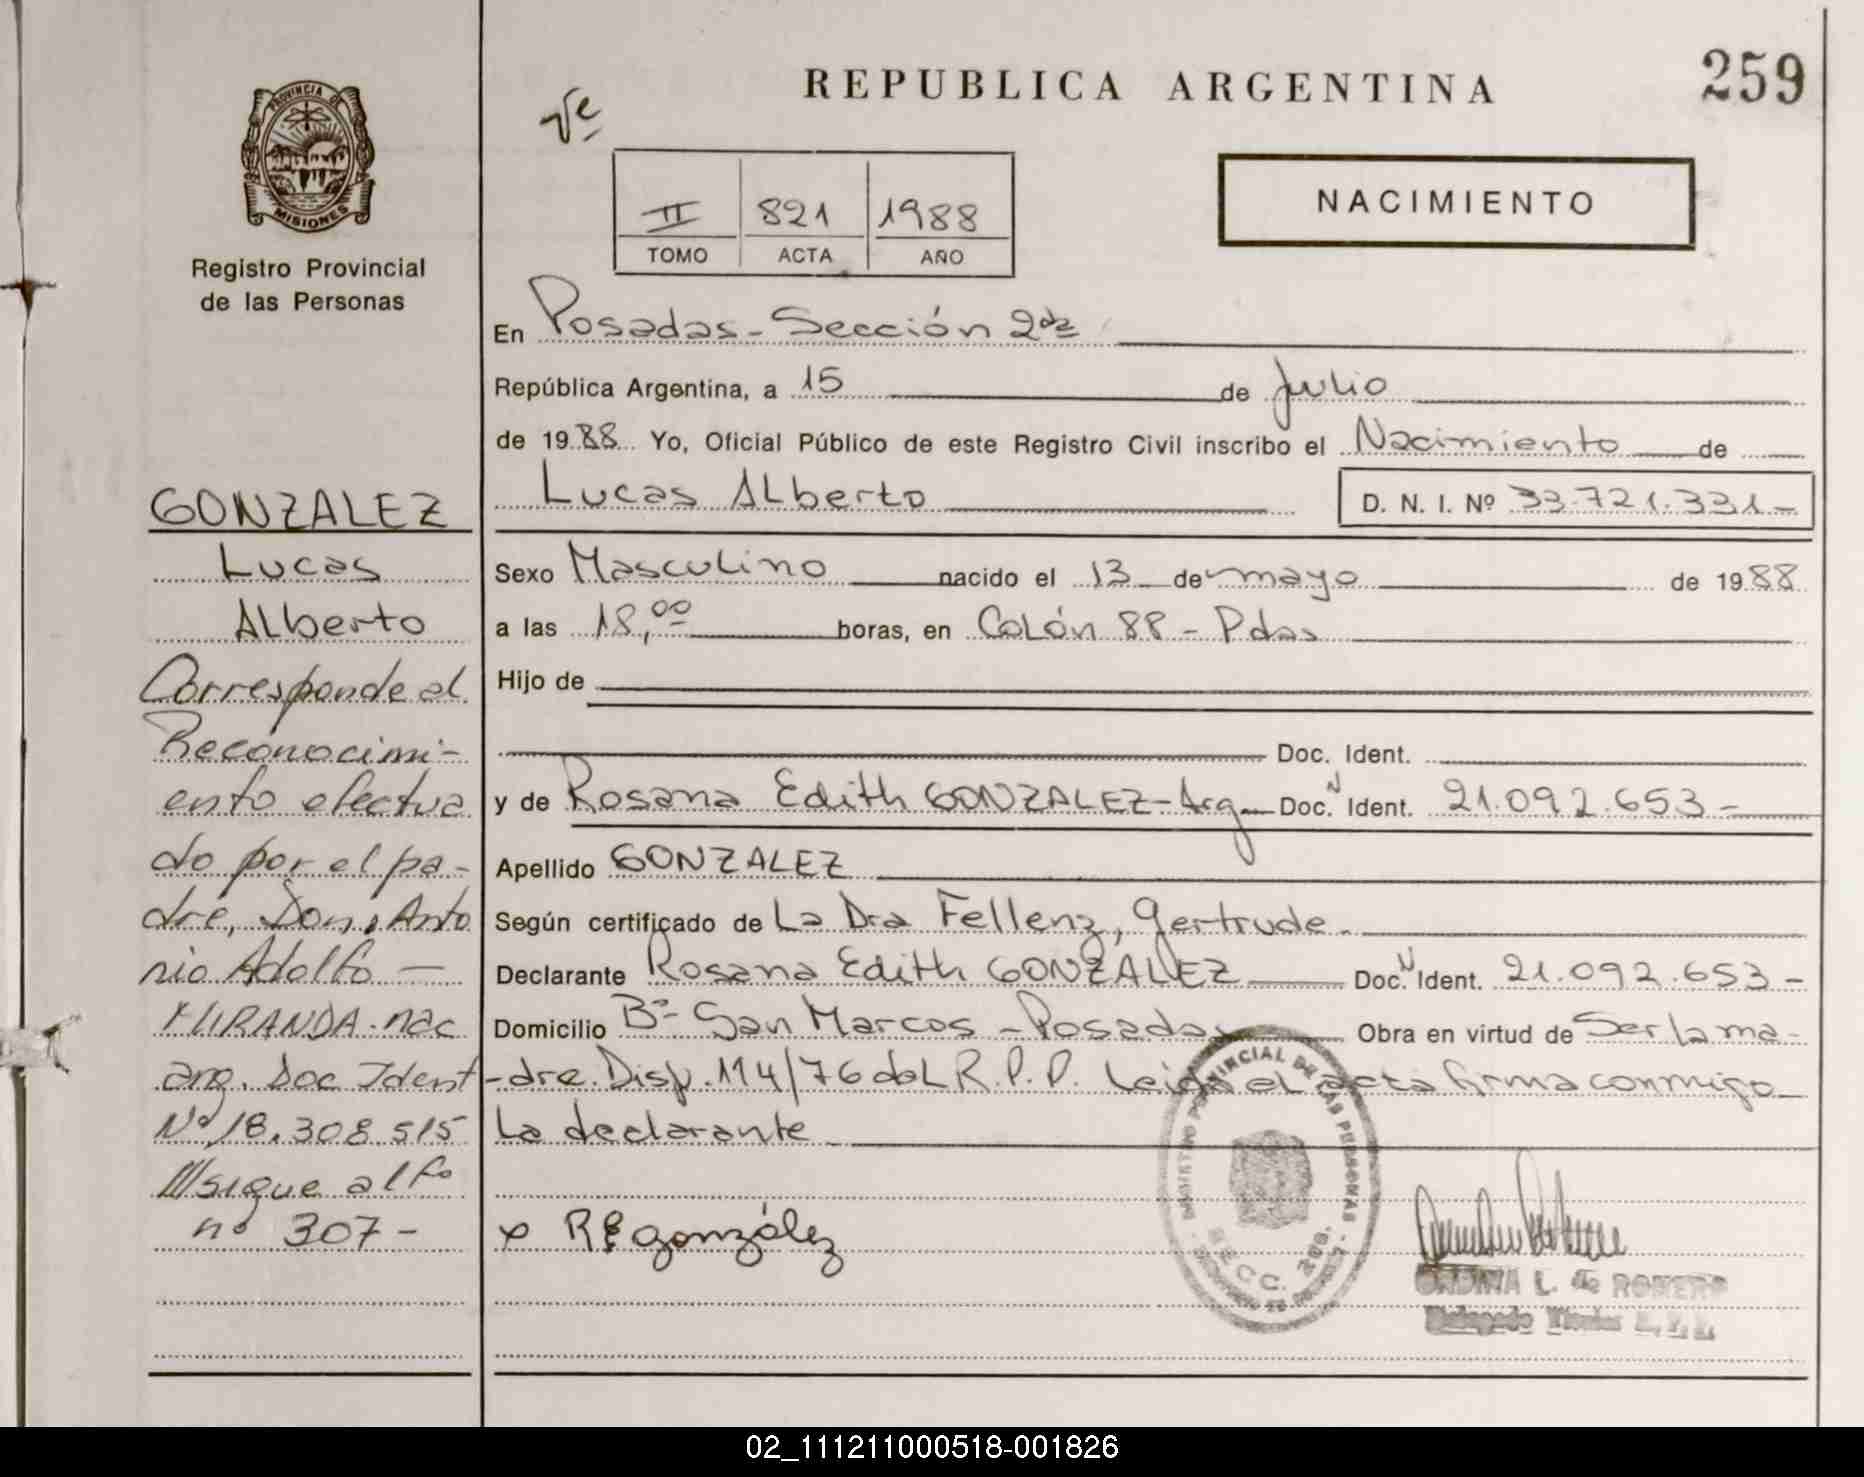 REPUBLICA ARGENTINA
259
PROVINCIA DE
MISIONES
Registro Provincial
de las Personas
II 821 1988
TOMO ACTA AÑO
NACIMIENTO
En Posadas - Sección 2da
República Argentina, a 15 de Julio
de 1988 Yo, Oficial Público de este Registro Civil inscribo el Nacimiento de
Lucas Alberto D. N. I. Nº 33.721.331-
Sexo Masculino nacido el 13 de mayo de 1988
a las 18,00 horas, en Colón 88 - Pdas
Hijo de
Doc. Ident.
y de Rosana Edith GONZALEZ - Arg. Doc. N Ident. 21.092.653-
Apellido GONZALEZ
Según certificado de La Dra Fellenz, Gertrude.
Declarante Rosana Edith GONZÁLEZ Doc. N Ident. 21.092.653-
Domicilio Bº San Marcos - Posadas Obra en virtud de Ser la ma-
-dre. Disp. 114/76 del R.P.P. Leída el acta firma conmigo
la declarante
x RE gonzález
GONZALEZ
Lucas
Alberto
Corresponde al
Reconocimi-
ento efectua
do por el pa-
dre, Don, Anto
nio Adolfo —
MIRANDA - nac
arg. Doc Ident
Nº 18.308.515
///sigue al fº
nº 307-
REGISTRO PROVINCIAL DE LAS PERSONAS
SECC. 2da.
L. de ROMERO
02_111211000518-001826